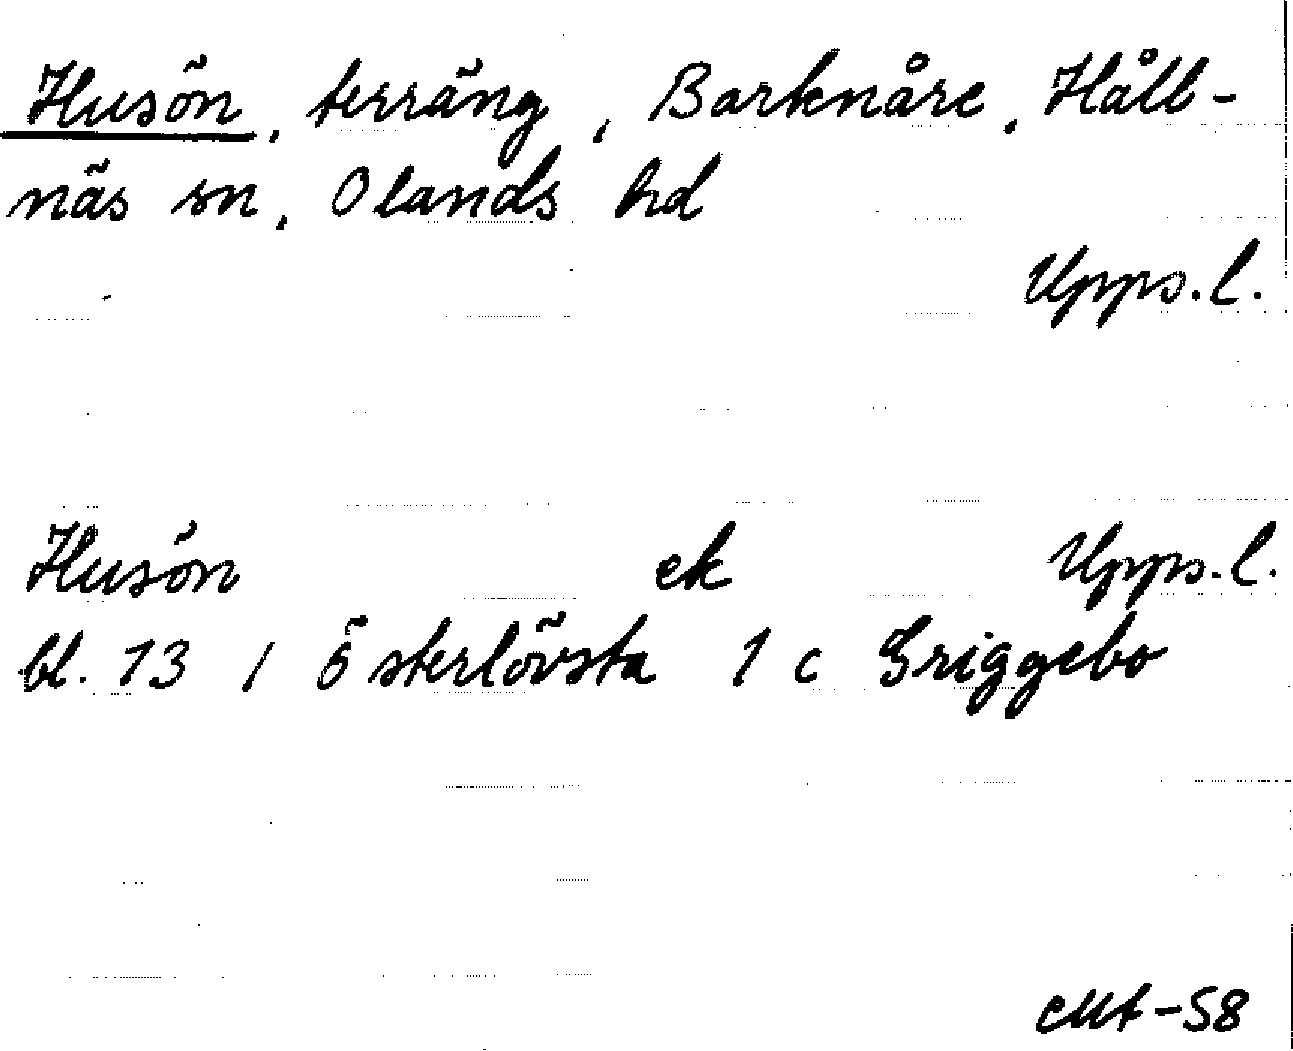 Husön, terräng, Barknåre, Håll-
näs sn, Olands hd
Upps.l.
Husön ek Upps.l.
bl. 13 / Österlövsta 1 c Griggebo